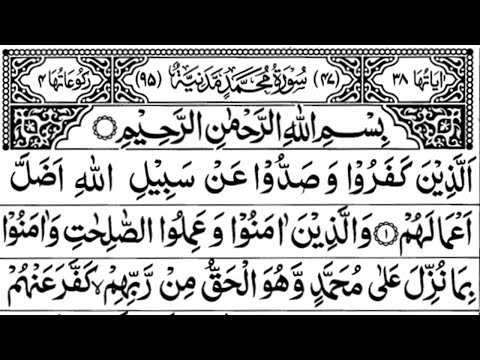 اٰيَاتُهَا ٣٨ (٤٧) سُوْرَةُ مُحَمَّدٍ مَّدَنِيَّةٌ (٩٥) رُكُوْعَاتُهَا ٤
بِسْمِ اللّٰهِ الرَّحْمٰنِ الرَّحِيْمِ
اَلَّذِيْنَ كَفَرُوْا وَ صَدُّوْا عَنْ سَبِيْلِ اللّٰهِ اَضَلَّ
اَعْمَالَهُمْ ۝۱ وَالَّذِيْنَ اٰمَنُوْا وَ عَمِلُوا الصّٰلِحٰتِ وَاٰمَنُوْا
بِمَا نُزِّلَ عَلٰى مُحَمَّدٍ وَّهُوَ الْحَقُّ مِنْ رَّبِّهِمْ ۙ كَفَّرَ عَنْهُمْ